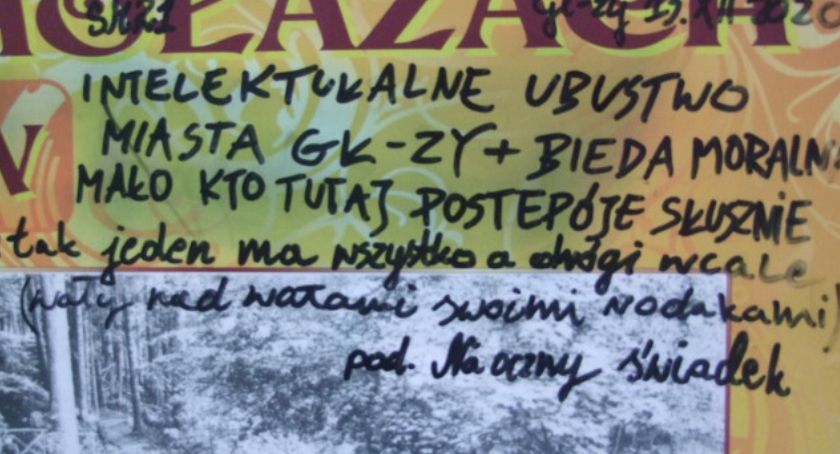 GŁAZACH
SK21
GŁ-ZY 15.XII 2020
INTELEKTUALNE UBUSTWO
MIASTA GŁ-ZY + BIEDA MORALNA
MAŁO KTO TUTAJ POSTEPÓJE SŁUSZNIE
tak jeden ma wszystko a drógi wcale
(wały nad wałami swoimi rodakami)
pod. Na oczny świadek